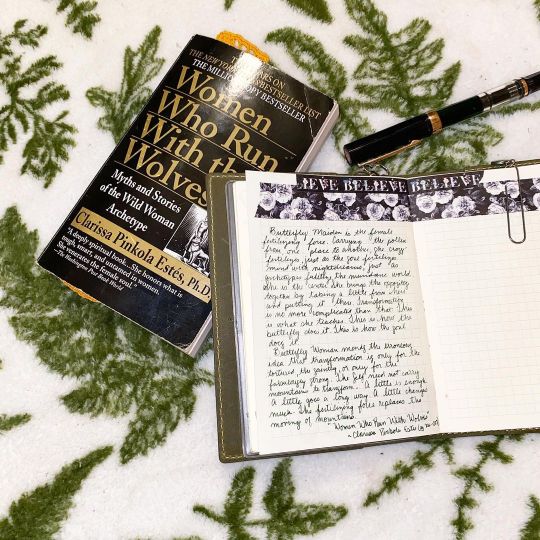 THREE YEARS ON
THE NEW YORK TIMES BESTSELLER LIST
THE MILLION-COPY BESTSELLER
Women
Who Run
With the
Wolves
Myths and Stories
of the Wild Woman
Archetype
Clarissa Pinkola Estés, Ph.D.
"A deeply spiritual book...She honors what is
tough, smart, and untamed in women.
She venerates the female soul."
—The Washington Post Book World
BELIEVE BELIEVE BELIEVE
Butterfly Maiden is the female
fertilizing force. Carrying the pollen
from one place to another, she cross
fertilizes, just as the soul fertilizes
mind with nightdreams, just as
archetypes fertilize the mundane world.
She is the center. She brings the opposites
together by taking a little from here
and putting it there. Transformation
is no more complicated than that. This
is what she teaches. This is how the
butterfly does it. This is how the soul
does it.
Butterfly Woman mends the erroneous
idea that transformation is only for the
tortured, the saintly, or only for the
fabulously strong. The Self need not carry
mountains to transform. A little is enough.
A little goes a long way. A little changes
much. The fertilizing force replaces the
moving of mountains.
"Women Who Run With Wolves"
- Clarissa Pinkola Estés